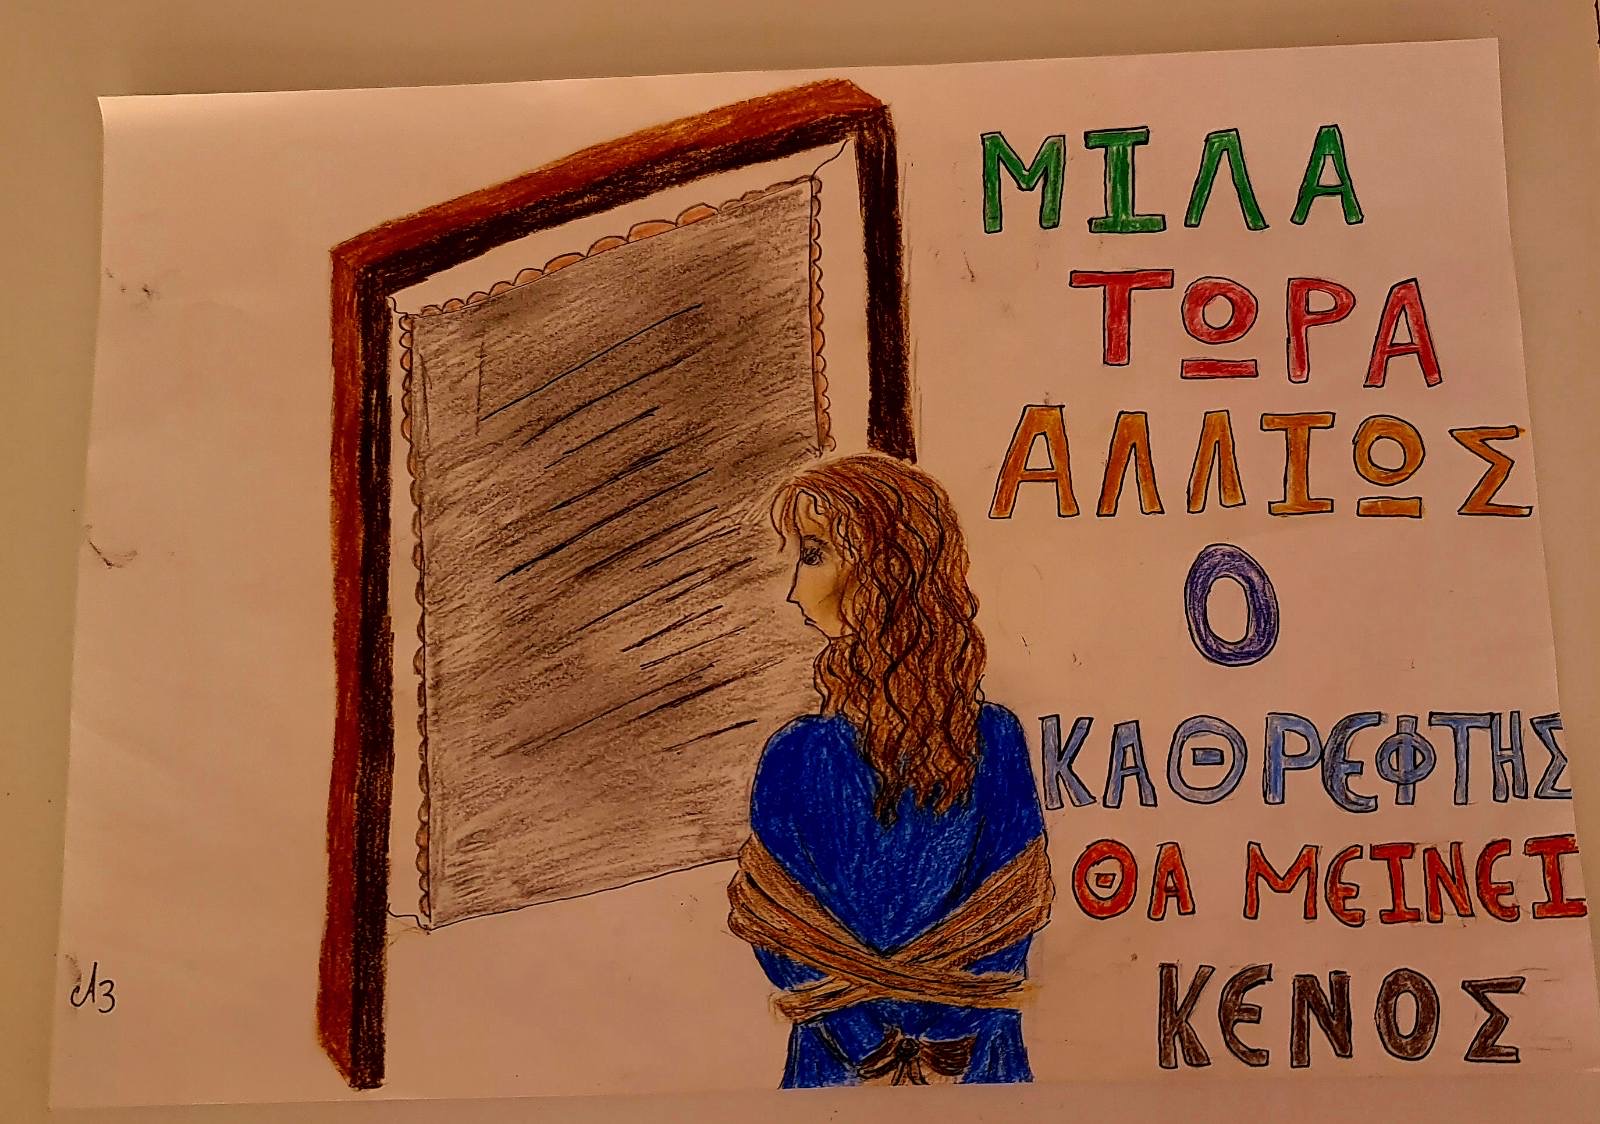 ΜΙΛΑ
ΤΩΡΑ
ΑΛΛΙΩΣ
Ο
ΚΑΘΡΕΦΤΗΣ
ΘΑ ΜΕΙΝΕΙ
ΚΕΝΟΣ